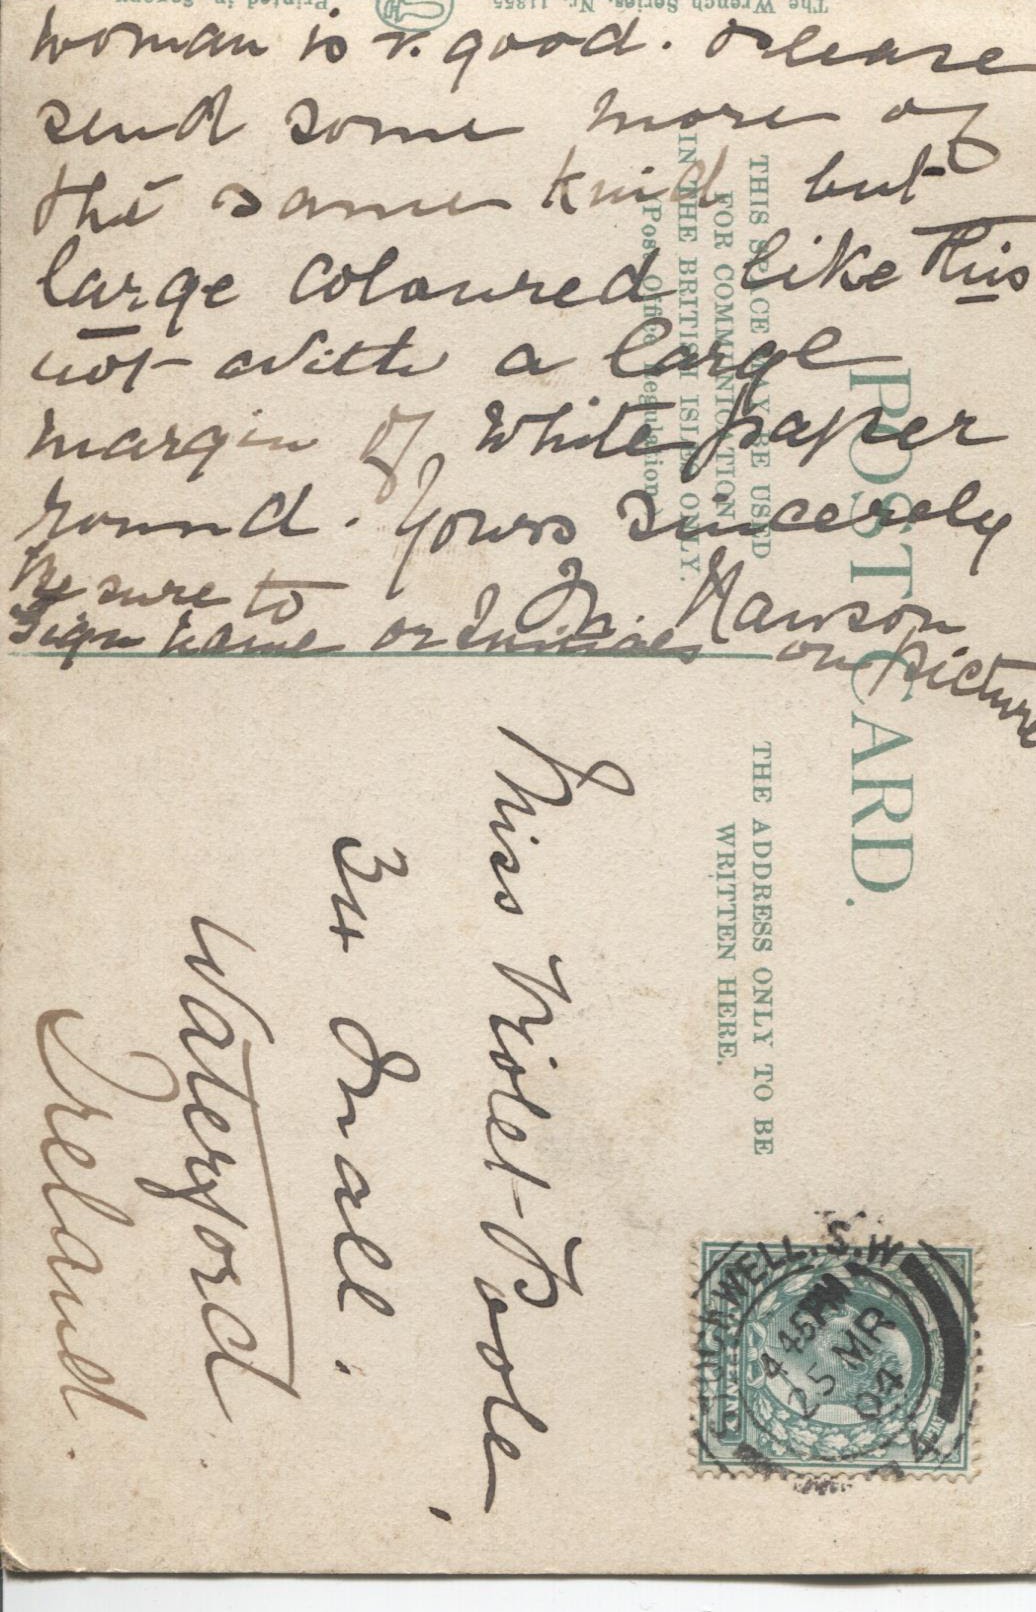 The Wrench Series, Nr. 11855
Printed in Saxony
woman is v. good. Please
send some more of
the same kind but
large coloured like this
not with a large
margin of white paper
round. Yours sincerely
M. Mawson
Be sure to
sign name or Initials on picture
POST CARD.
THIS SPACE MAY BE USED
FOR COMMUNICATION
IN THE BRITISH ISLES ONLY.
(Post Office Regulation).
THE ADDRESS ONLY TO BE
WRITTEN HERE.
Miss Violet Poole,
34 Mall.
Waterford
Ireland.
STOCKWELL. S.W
4 45PM
25 MR
04
4